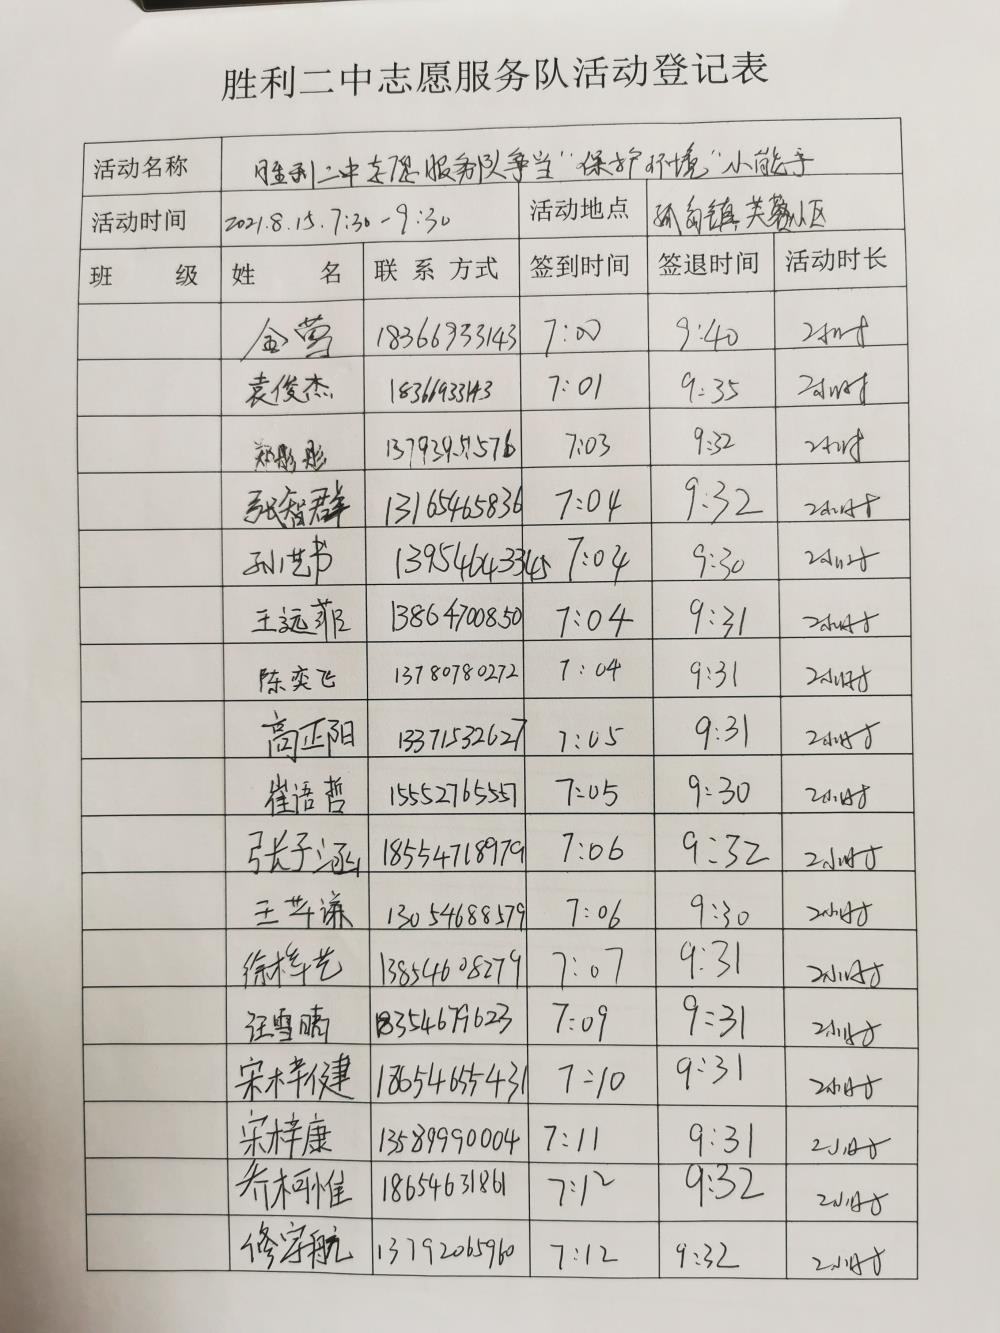 胜利二中志愿服务队活动登记表
活动名称 胜利二中志愿服务队争当“保护环境”小能手
活动时间 2021.8.15.7:30-9:30 活动地点 孤岛镇芙蓉小区
班 级 姓 名 联系方式 签到时间 签退时间 活动时长
金莺 18366933143 7:00 9:40 2小时
袁俊杰 18366933143 7:01 9:35 2小时
郑彤彤 13793951576 7:03 9:32 2小时
张智群 13165465836 7:04 9:32 2小时
孙艺书 13954643345 7:04 9:30 2小时
王远菲 13864700850 7:04 9:31 2小时
陈奕飞 13780780272 7:04 9:31 2小时
高正阳 13371532627 7:05 9:31 2小时
崔语哲 15552765557 7:05 9:30 2小时
张子涵 18554718979 7:06 9:32 2小时
王 谦 13054688579 7:06 9:30 2小时
徐梓艺 13854608279 7:07 9:31 2小时
汪雪晴 18354679623 7:09 9:31 2小时
宋梓健 18654655431 7:10 9:31 2小时
宋梓康 13589990004 7:11 9:31 2小时
乔柯惟 18654631861 7:12 9:32 2小时
修宇航 13792065960 7:12 9:32 2小时